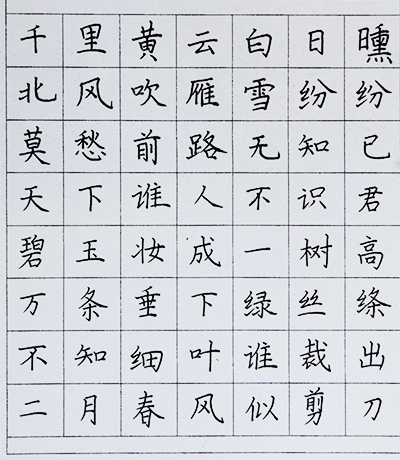 千里黄云白日曛
北风吹雁雪纷纷
莫愁前路无知己
天下谁人不识君
碧玉妆成一树高
万条垂下绿丝绦
不知细叶谁裁出
二月春风似剪刀